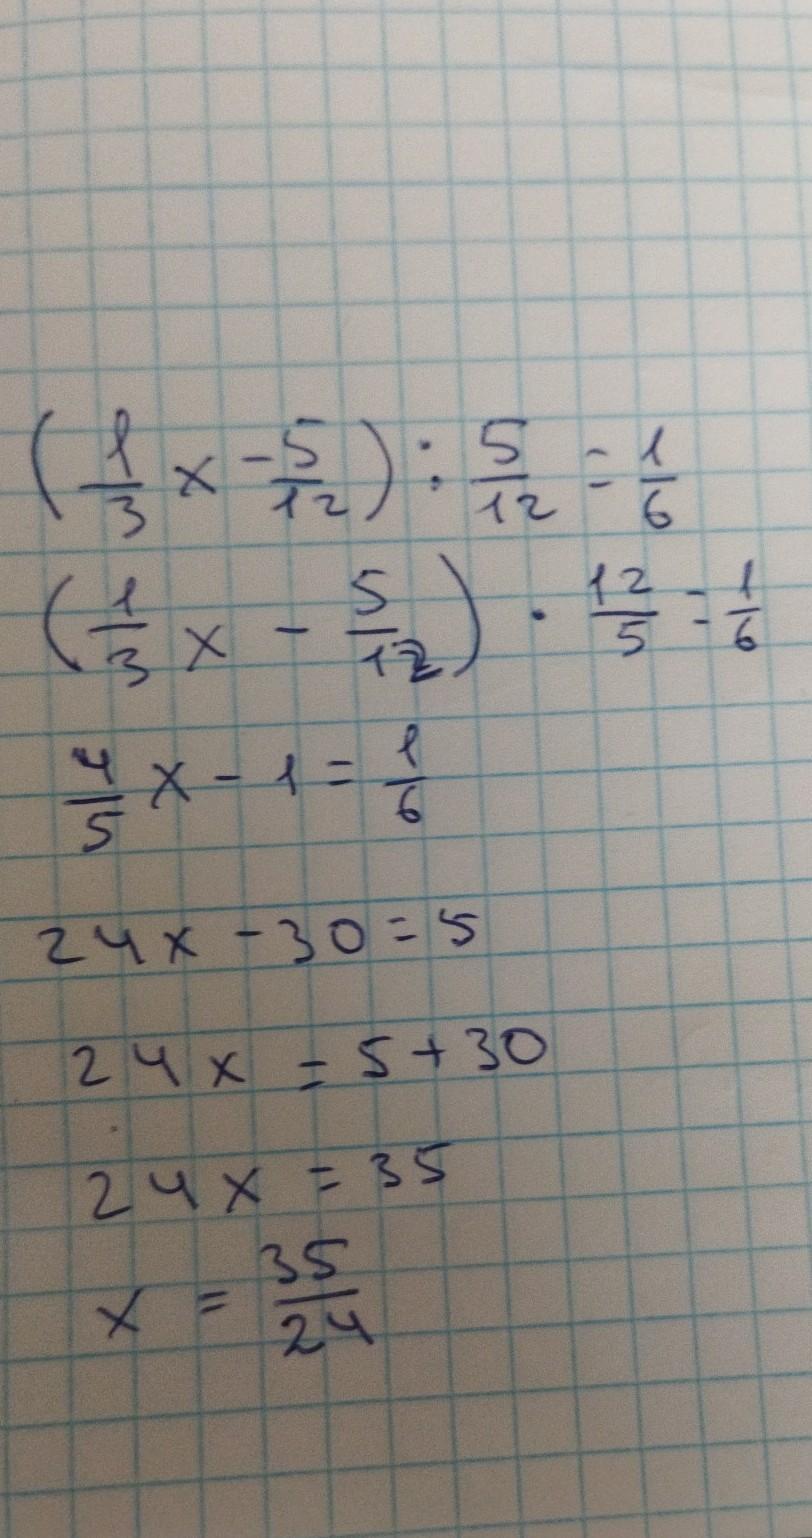 (1/3 x - 5/12) : 5/12 = 1/6
(1/3 x - 5/12) · 12/5 = 1/6
4/5 x - 1 = 1/6
24x - 30 = 5
24x = 5 + 30
24x = 35
x = 35/24